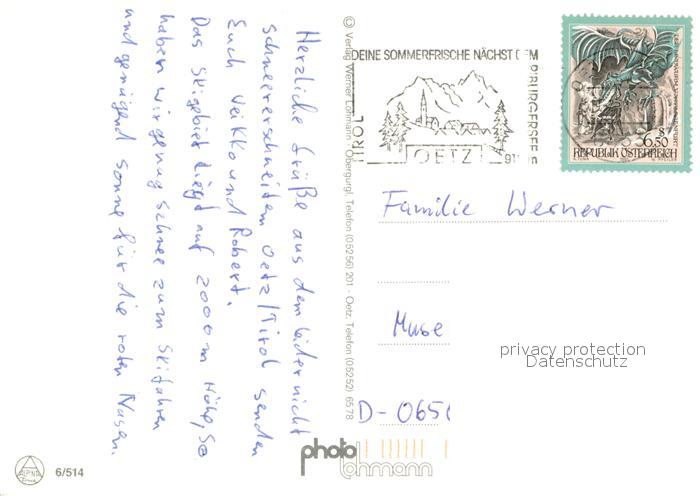 Herzliche Grüße aus dem leider nicht
schneeverschneitem Oetz/Tirol senden
Euch Veikko und Robert.
Das Skigebiet liegt auf 2000 m Höhe, so
haben wir genug Schnee zum Skifahren
und genügend Sonne für die roten Nasen.
© Verlag Werner Lohmann · Obergurgl, Telefon (05256) 201 · Oetz, Telefon (05252) 6578
DEINE SOMMERFRISCHE NÄCHST DEM
PIBURGERSEE
TIROL
OETZ
6.50
REPUBLIK ÖSTERREICH
Familie Werner
Muse
privacy protection
Datenschutz
D-065
photo
lohmann
ALPINA
6/514